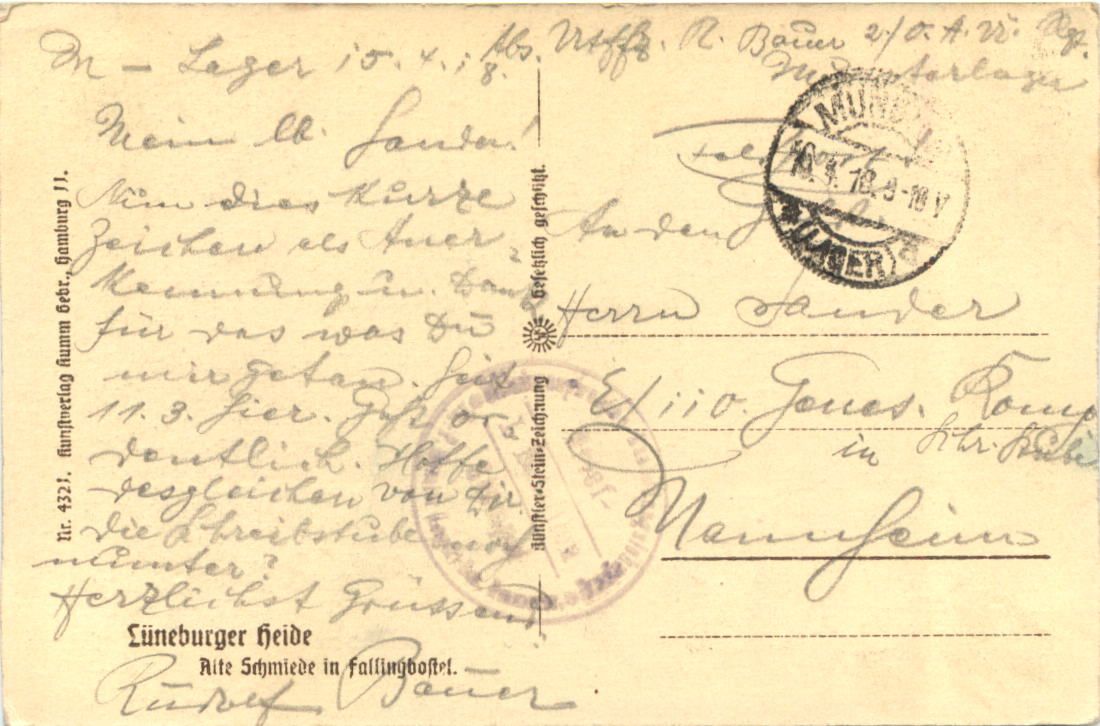 Abs. Utffz. R. Bauer 2/ 
Munsterlager
M – Lager 15.4.18.
Mein lb. Sander!
Nim dies kurze
Zeichen als Aner-
kennung u. Dank
für das was Du
mir getan. Seit
11.3. hier. Geht or-
dentlich. Hoffe
desgleichen von Dir.
Die Schreibstube noch
munter?
Herzlichst Grüssend
Rudolf Bauer
Lüneburger Heide
Alte Schmiede in Fallingbostel.
Nr. 4321. Kunstverlag Kumm Gebr., Hamburg 11.
Künstler-Stein-Zeichnung Gesetzlich geschützt.
MUNS
16.4.18.9-10V
* (LAGER) d
Feldpost
An den
Herrn Sander
E/110. Genes. Komp
in Schr. Stube
Mannheim